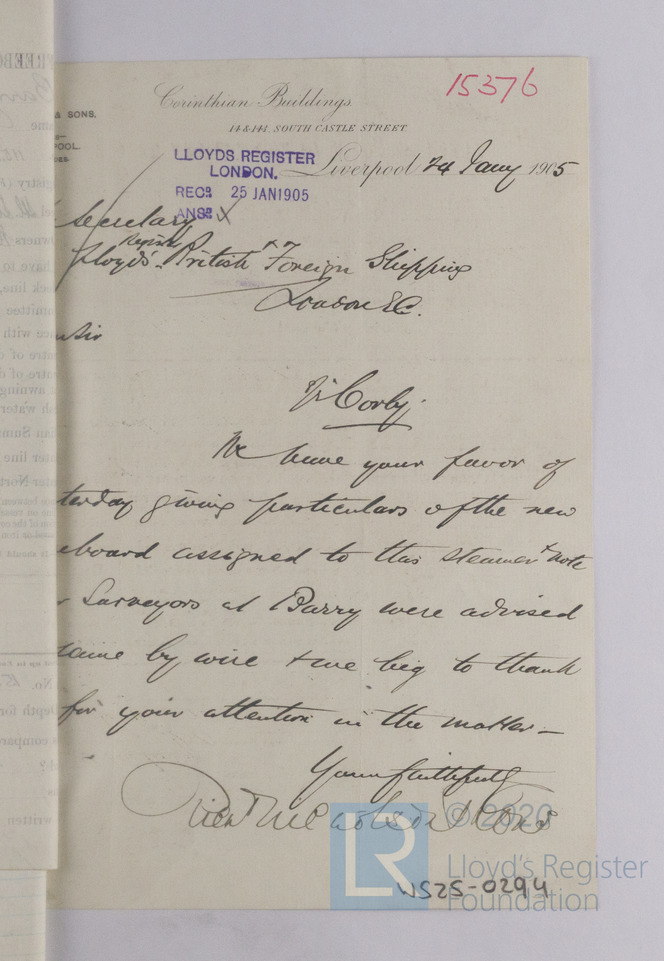 15376
Corinthian Buildings
& SONS.
14 & 14A, SOUTH CASTLE STREET.
POOL.
LLOYDS REGISTER
LONDON.
Liverpool 24 Jany 1905
RECD 25 JAN 1905
ANSD
Secretary
Lloyds' Register British & Foreign Shipping
London E.C.
Sir
Corby
We have your favor of
terday giving particulars of the new
eboard assigned to this steamer & note
r Surveyors at Barry were advised
same by wire & we beg to thank
for your attention in the matter —
Yours faithfully
& Sons
© 2020
LR
Lloyd's Register
Foundation
WS25-0294